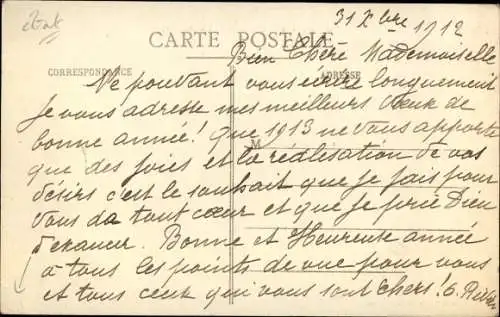 état
31 Xbre 1912
CARTE POSTALE
Bien Chère Mademoiselle
CORRESPONDANCE
ADRESSE
Ne pouvant vous écrire longuement
Je vous adresse mes meilleurs vœux de
bonne année! Que 1913 ne vous apporte
M
que des joies et la réalisation de vos
désirs c'est le souhait que je fais pour
vous de tout cœur et que je prie Dieu
d'exaucer. Bonne et Heureuse année
à tous les points de vue pour vous
et tous ceux qui vous sont chers! G.